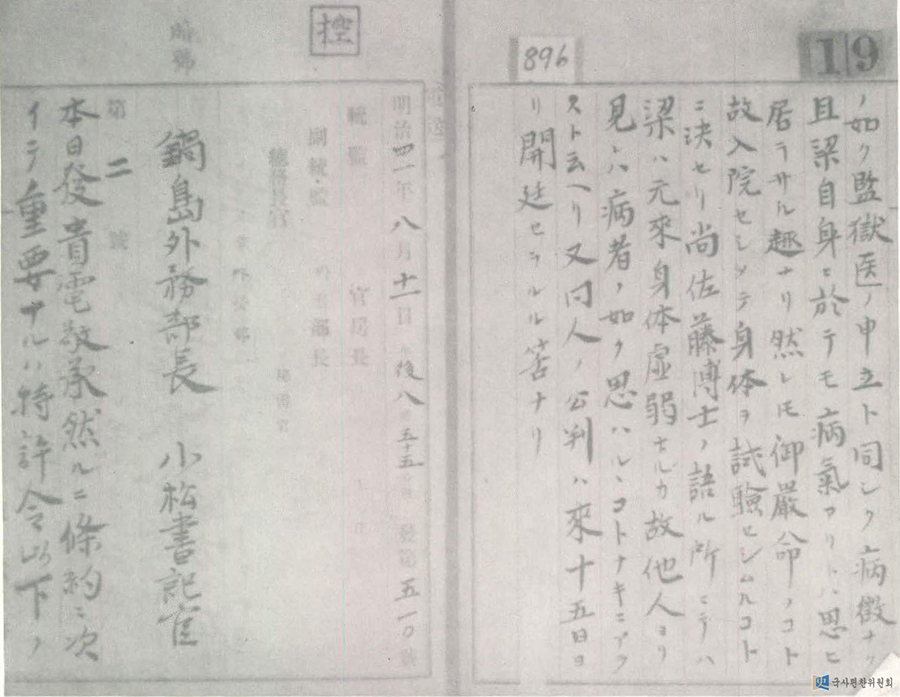 19
896
ノ如ク監獄医ノ申立ト同シク病徴ナク
且梁自身ニ於テモ病氣アリトハ思ヒ
居ラサル趣ナリ然レトモ御嚴命ノコト
故入院セシメテ身体ヲ試驗セシムルコト
ニ決セリ尚佐藤博士ノ語ル所ニテハ
梁ハ元來身体虚弱ナルカ故他人ヨリ
見レハ病者ノ如ク思ハルヽコトナキニアラ
スト云ヘリ又同人ノ公判ハ來十五日ヨ
リ開廷セラルル筈ナリ
控
暗號
明治四一年八月十一日 後八 五十五 發第五一〇號
統監 官房長
副統監 外務部長
總務長官 秘書官
鍋島外務部長 小松書記官
第二號
本日發貴電敬承然ルニ條約ニ次
イテ重要ナルハ特許令以下ノ
국사편찬위원회